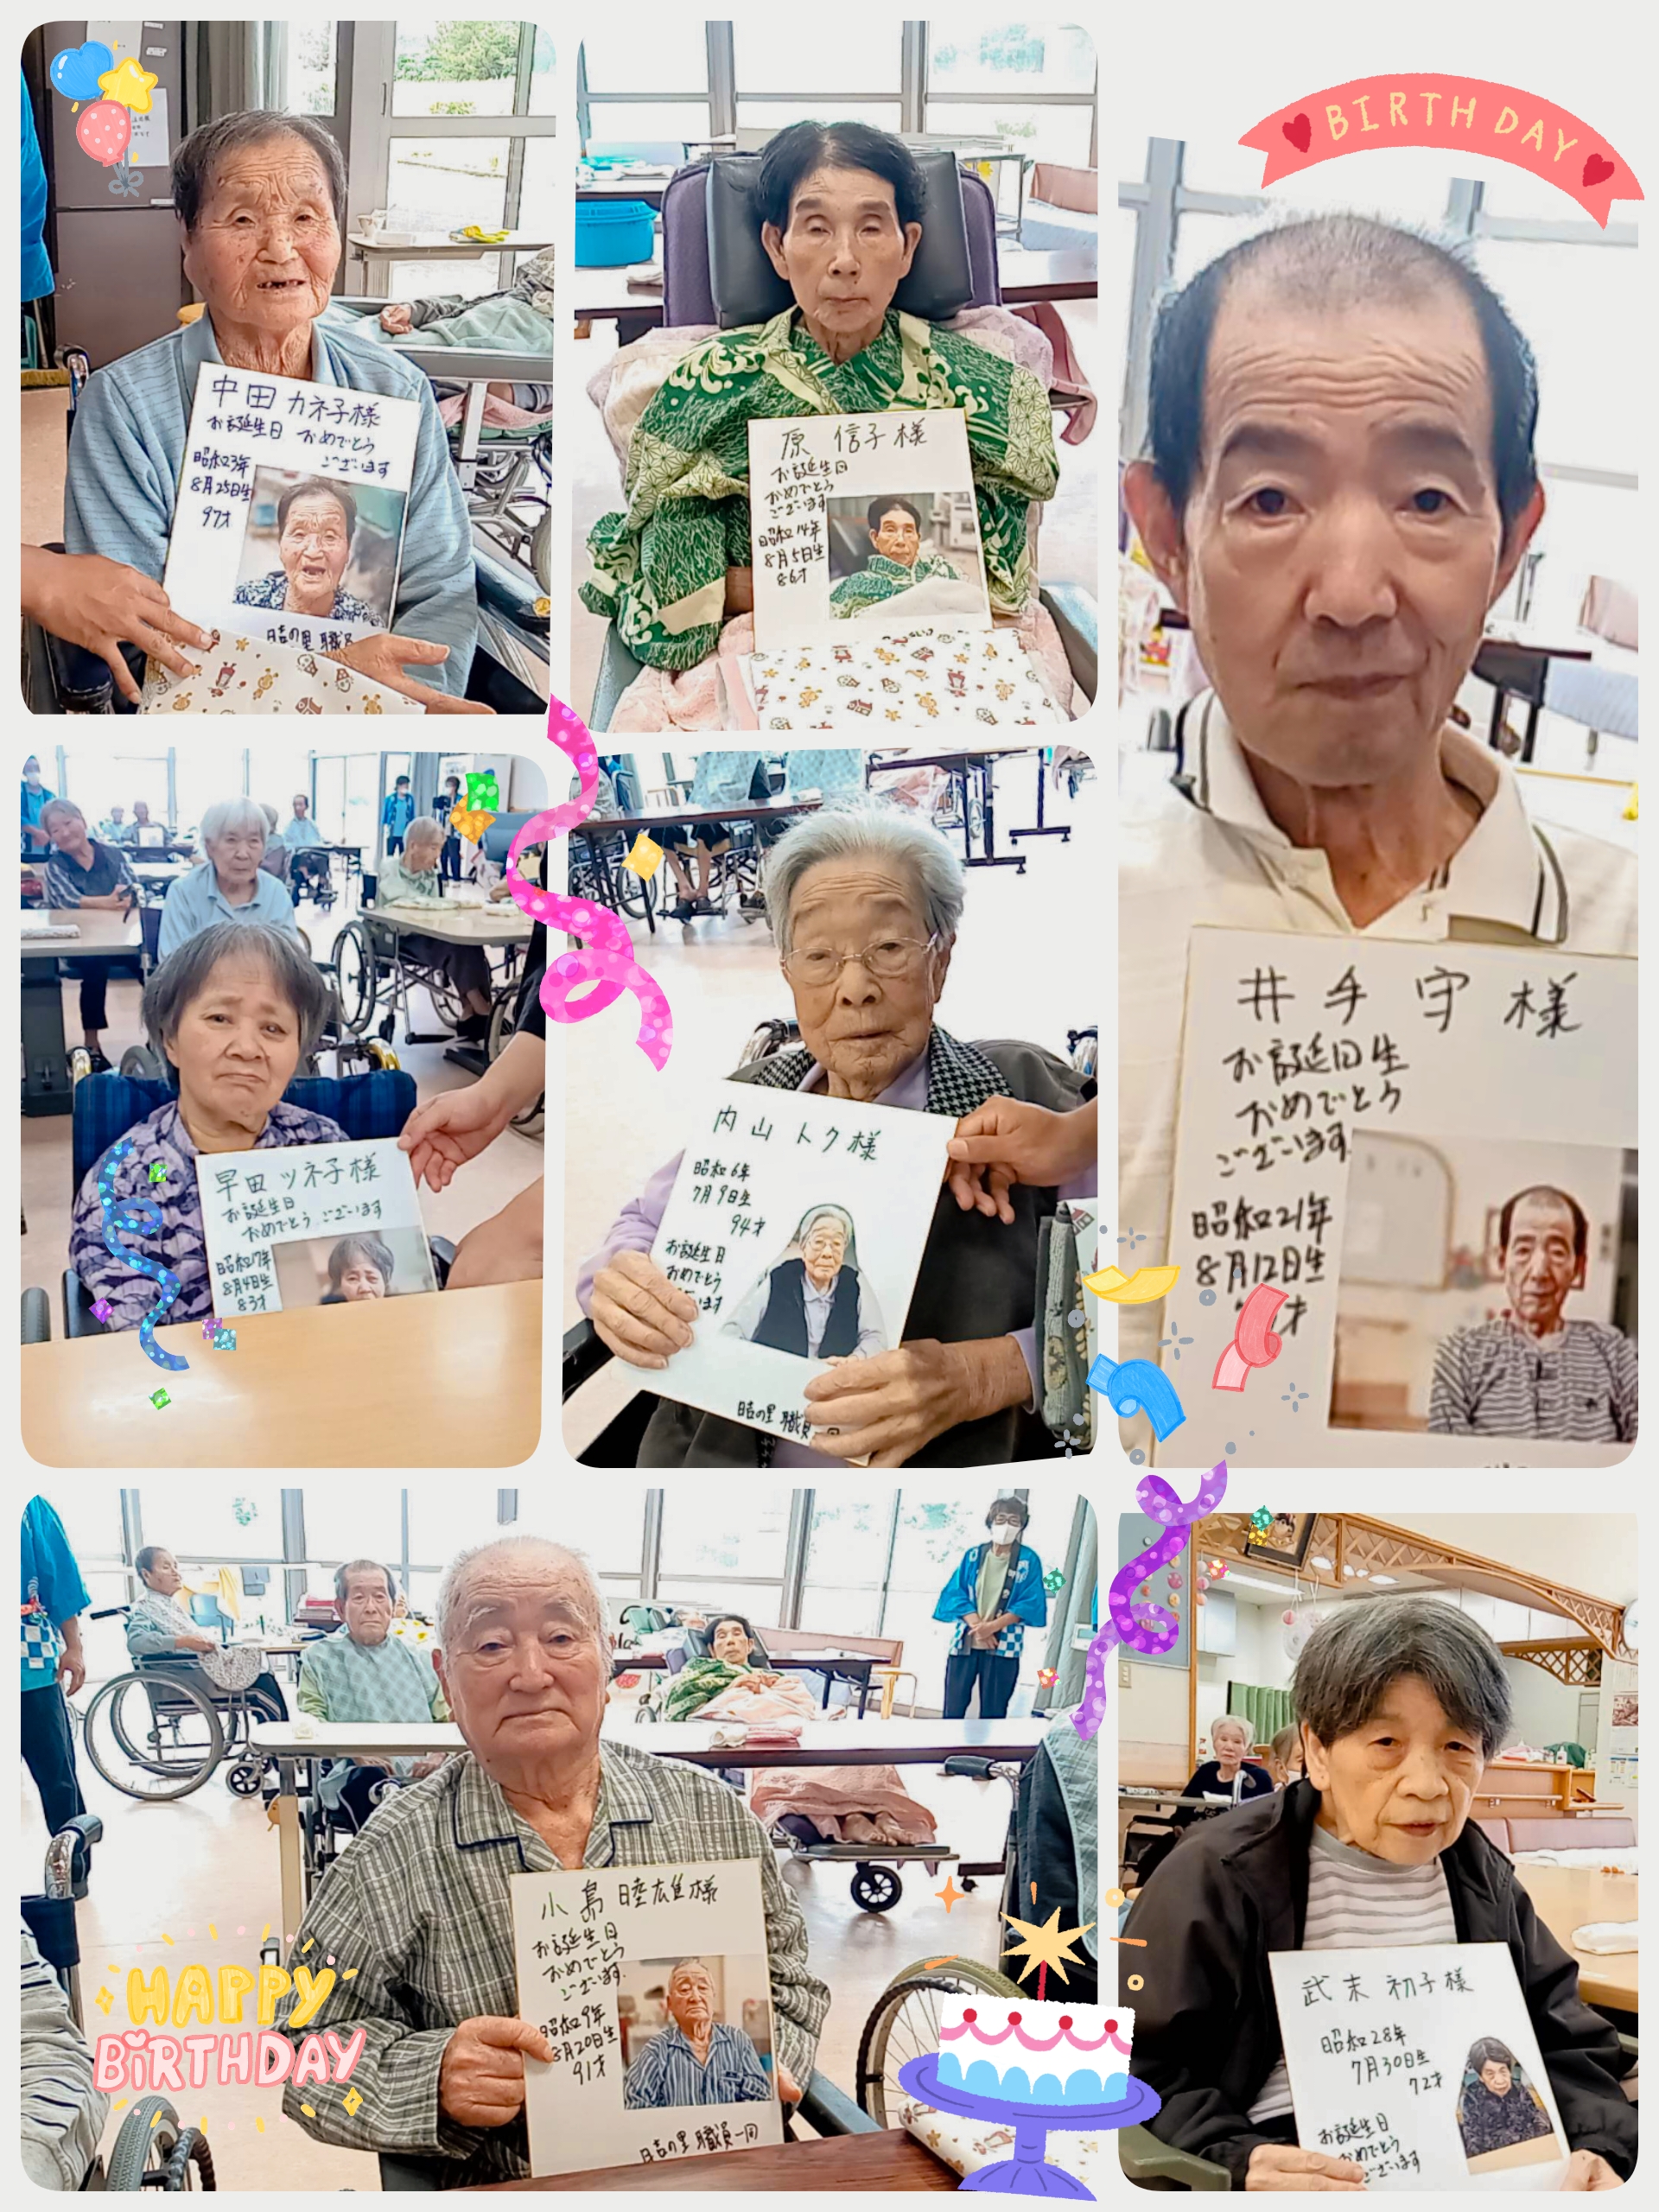 中田カネ子様
お誕生日 おめでとう
ございます
昭和3年
8月25日生
97才
日吉の里 職員
原 信子様
お誕生日
おめでとう
ございます
昭和14年
8月5日生
86才
BIRTHDAY
井手守様
お誕日生
おめでとう
ございます
昭和21年
8月12日生
才
早田ツネ子様
お誕生日
おめでとう ございます
昭和17年
8月4日生
83才
内山トク様
昭和6年
7月9日生
94才
お誕生日
おめでとう
います
日吉の里 職員一同
小島睦雄様
お誕生日
おめでとう
ございます
昭和9年
8月20日生
91才
日吉の里 職員一同
HAPPY
BiRTHDAY
武末 初子様
昭和28年
7月30日生
72才
お誕生日
おめでとう
ございます